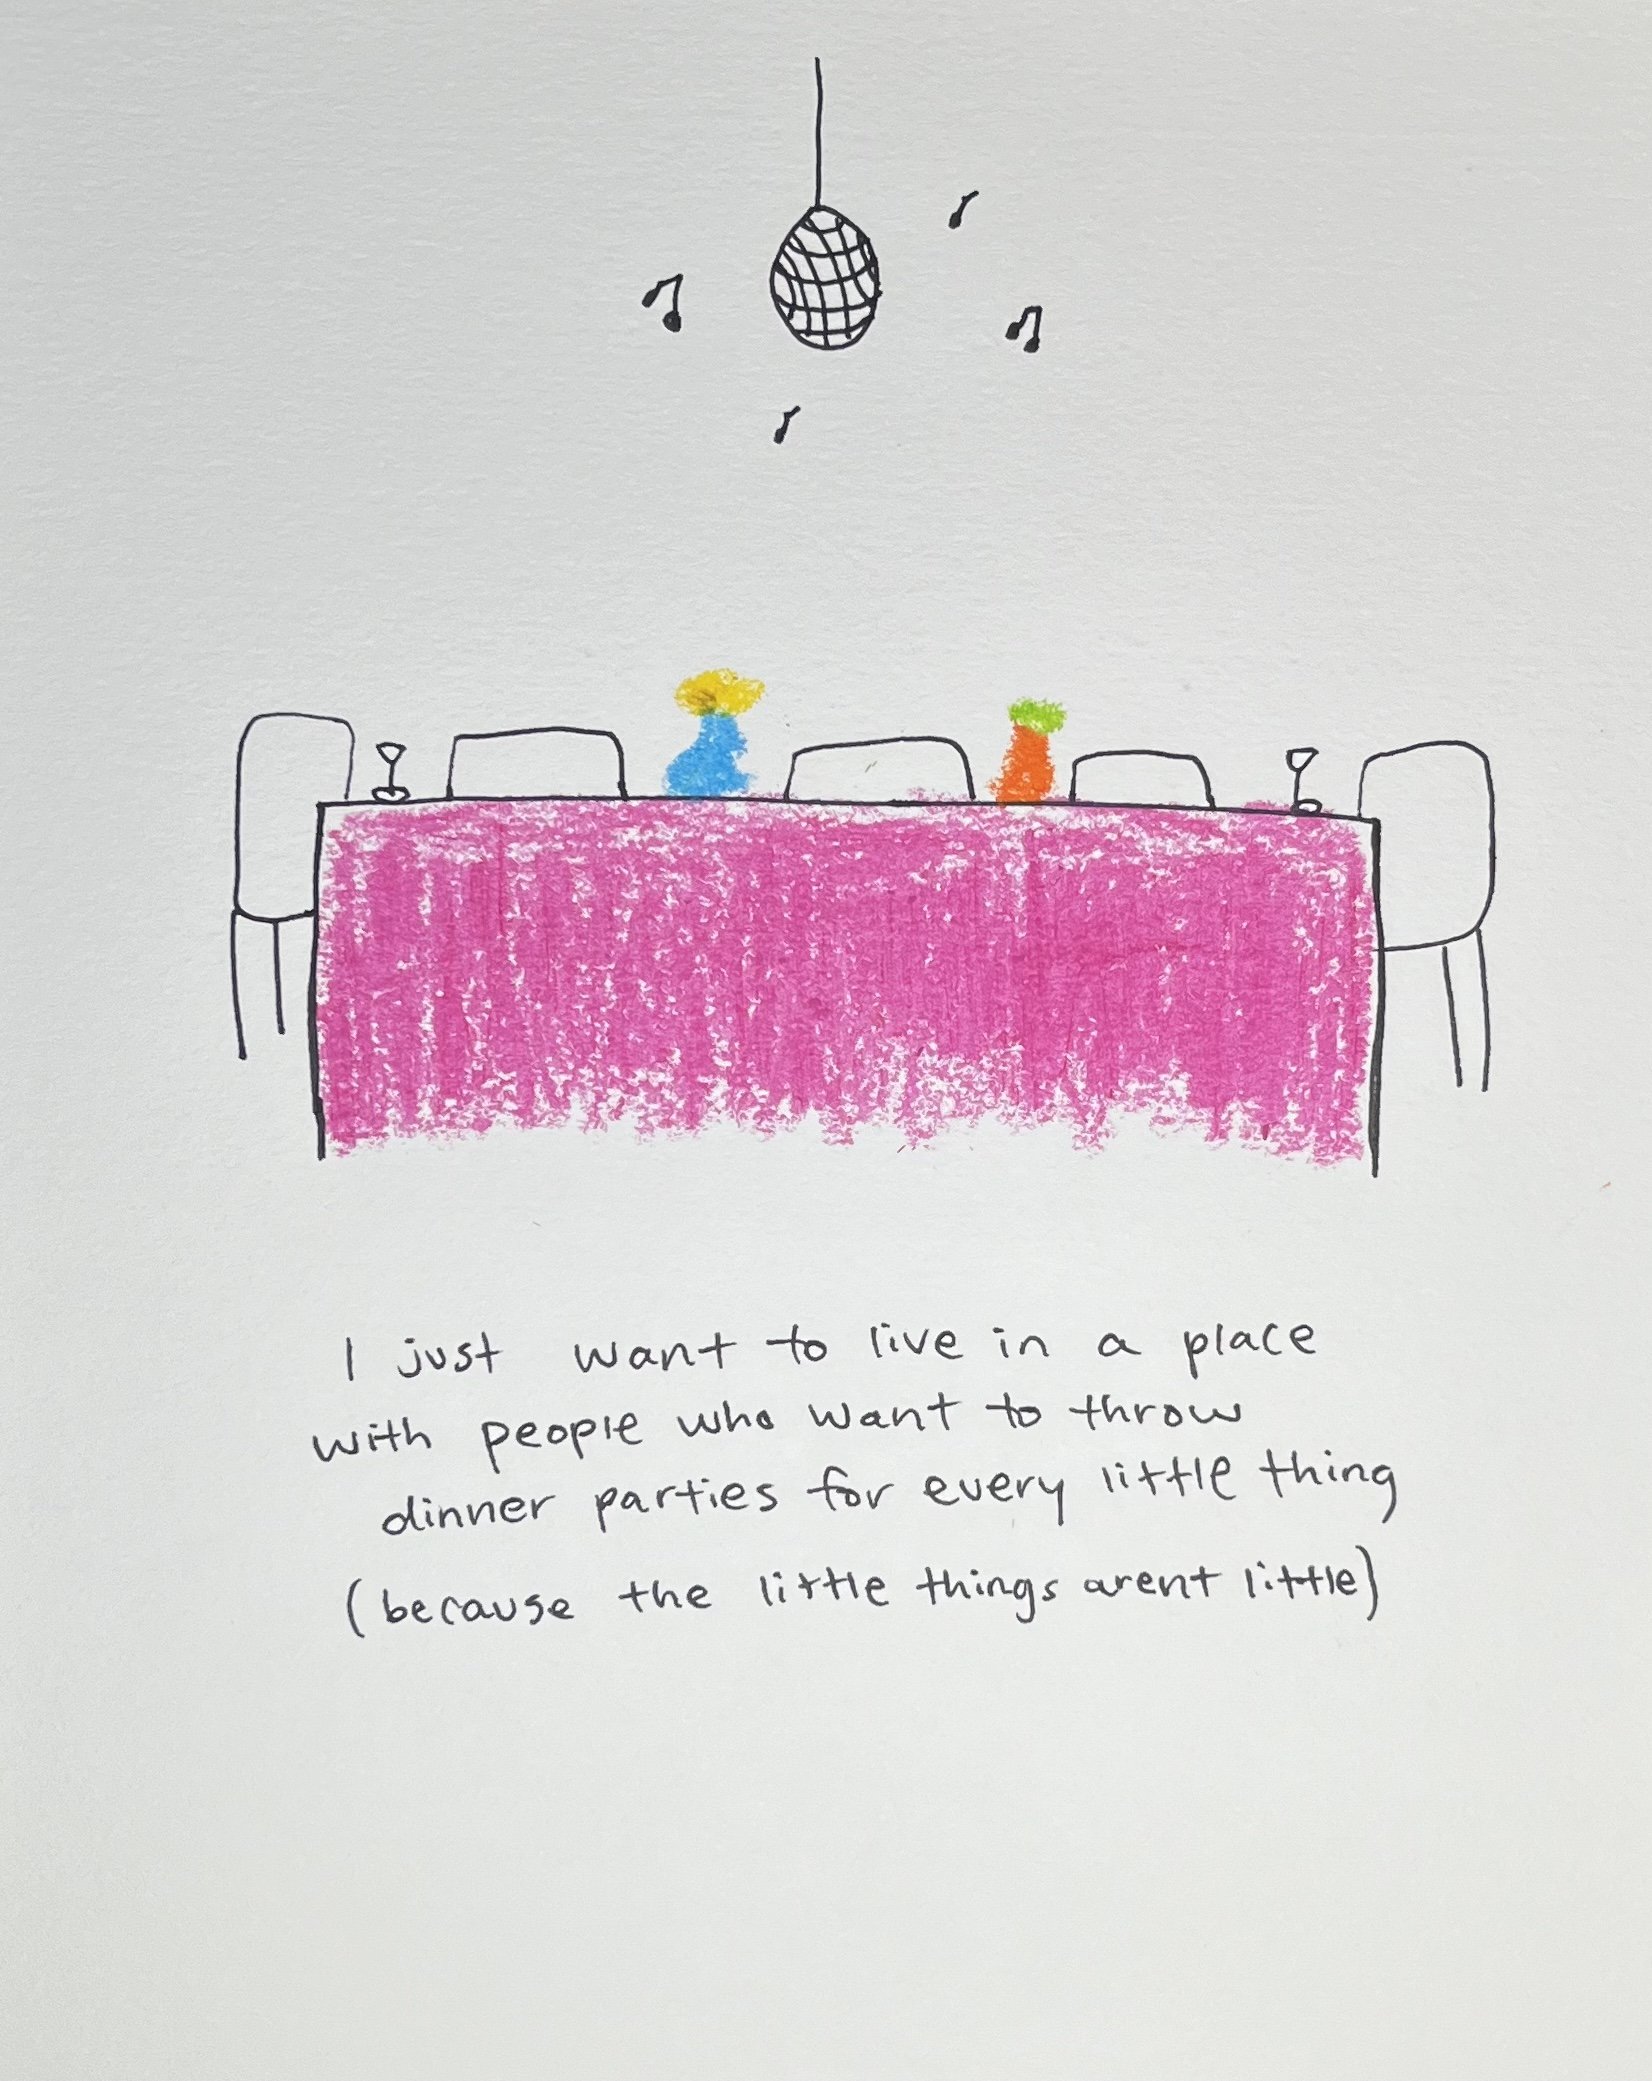 I just want to live in a place
with people who want to throw
dinner parties for every little thing
(because the little things arent little)